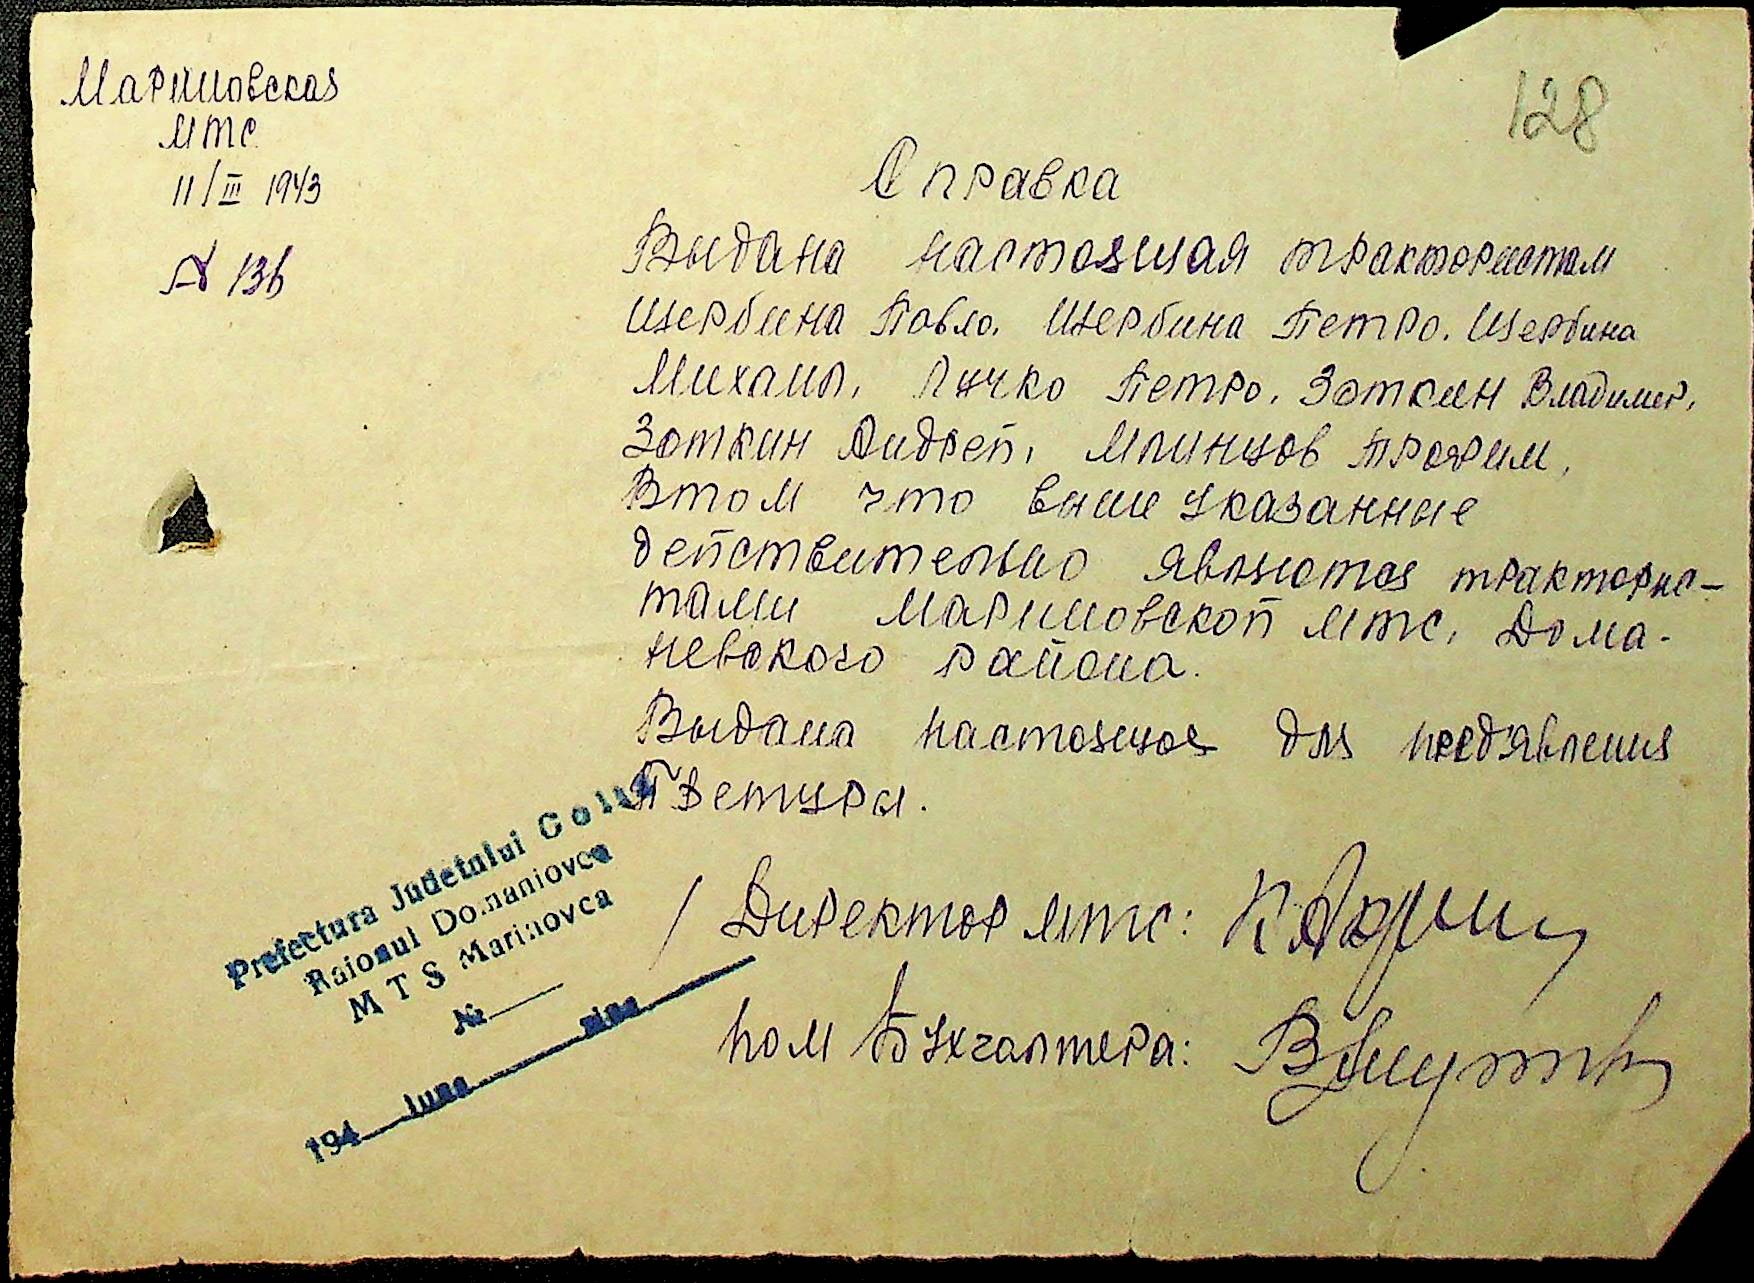 Мариновская
МТС
11/III 1943
№ 136
128
Справка
Выдана настоящая трактористам
Щербина Павло. Щербина Петро. Щербина
Михаил, Лучко Петро. Зоткин Владимир,
Зоткин Андрей, Млинцов Трофим,
Втом что выше указанные
действительно являются тракторис-
тами Мариновской МТС, Дома-
невского района.
Выдана настоящая для предъявления
Претуры.
/ Директор МТС:
Пом Бухгалтера:
Prefectura Judetului Golta
Raionul Domaniovca
M T S Marinovca
№
194 luna ziua